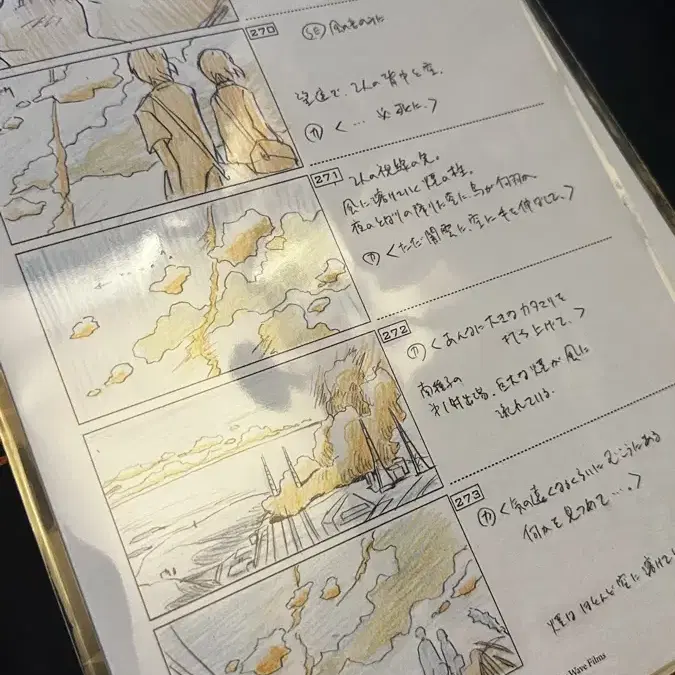 270
SE
望遠で、2人の背中と空。
<… 必死に、>
271
2人の視線の先。
風に溶けていく煙の柱。
夜のとばりの降りた空に鳥が何羽か
<ただ闇雲に、空に手を伸ばして、>
272
<あんなに大きなカタマリを
打ち上げて、>
南種子の
射出場。巨大な煙が風に
流れている。
273
<気の遠くなるくらいにむこうにある
何かを見つめて…。>
煙はほとんど空に溶けて
Wave Films